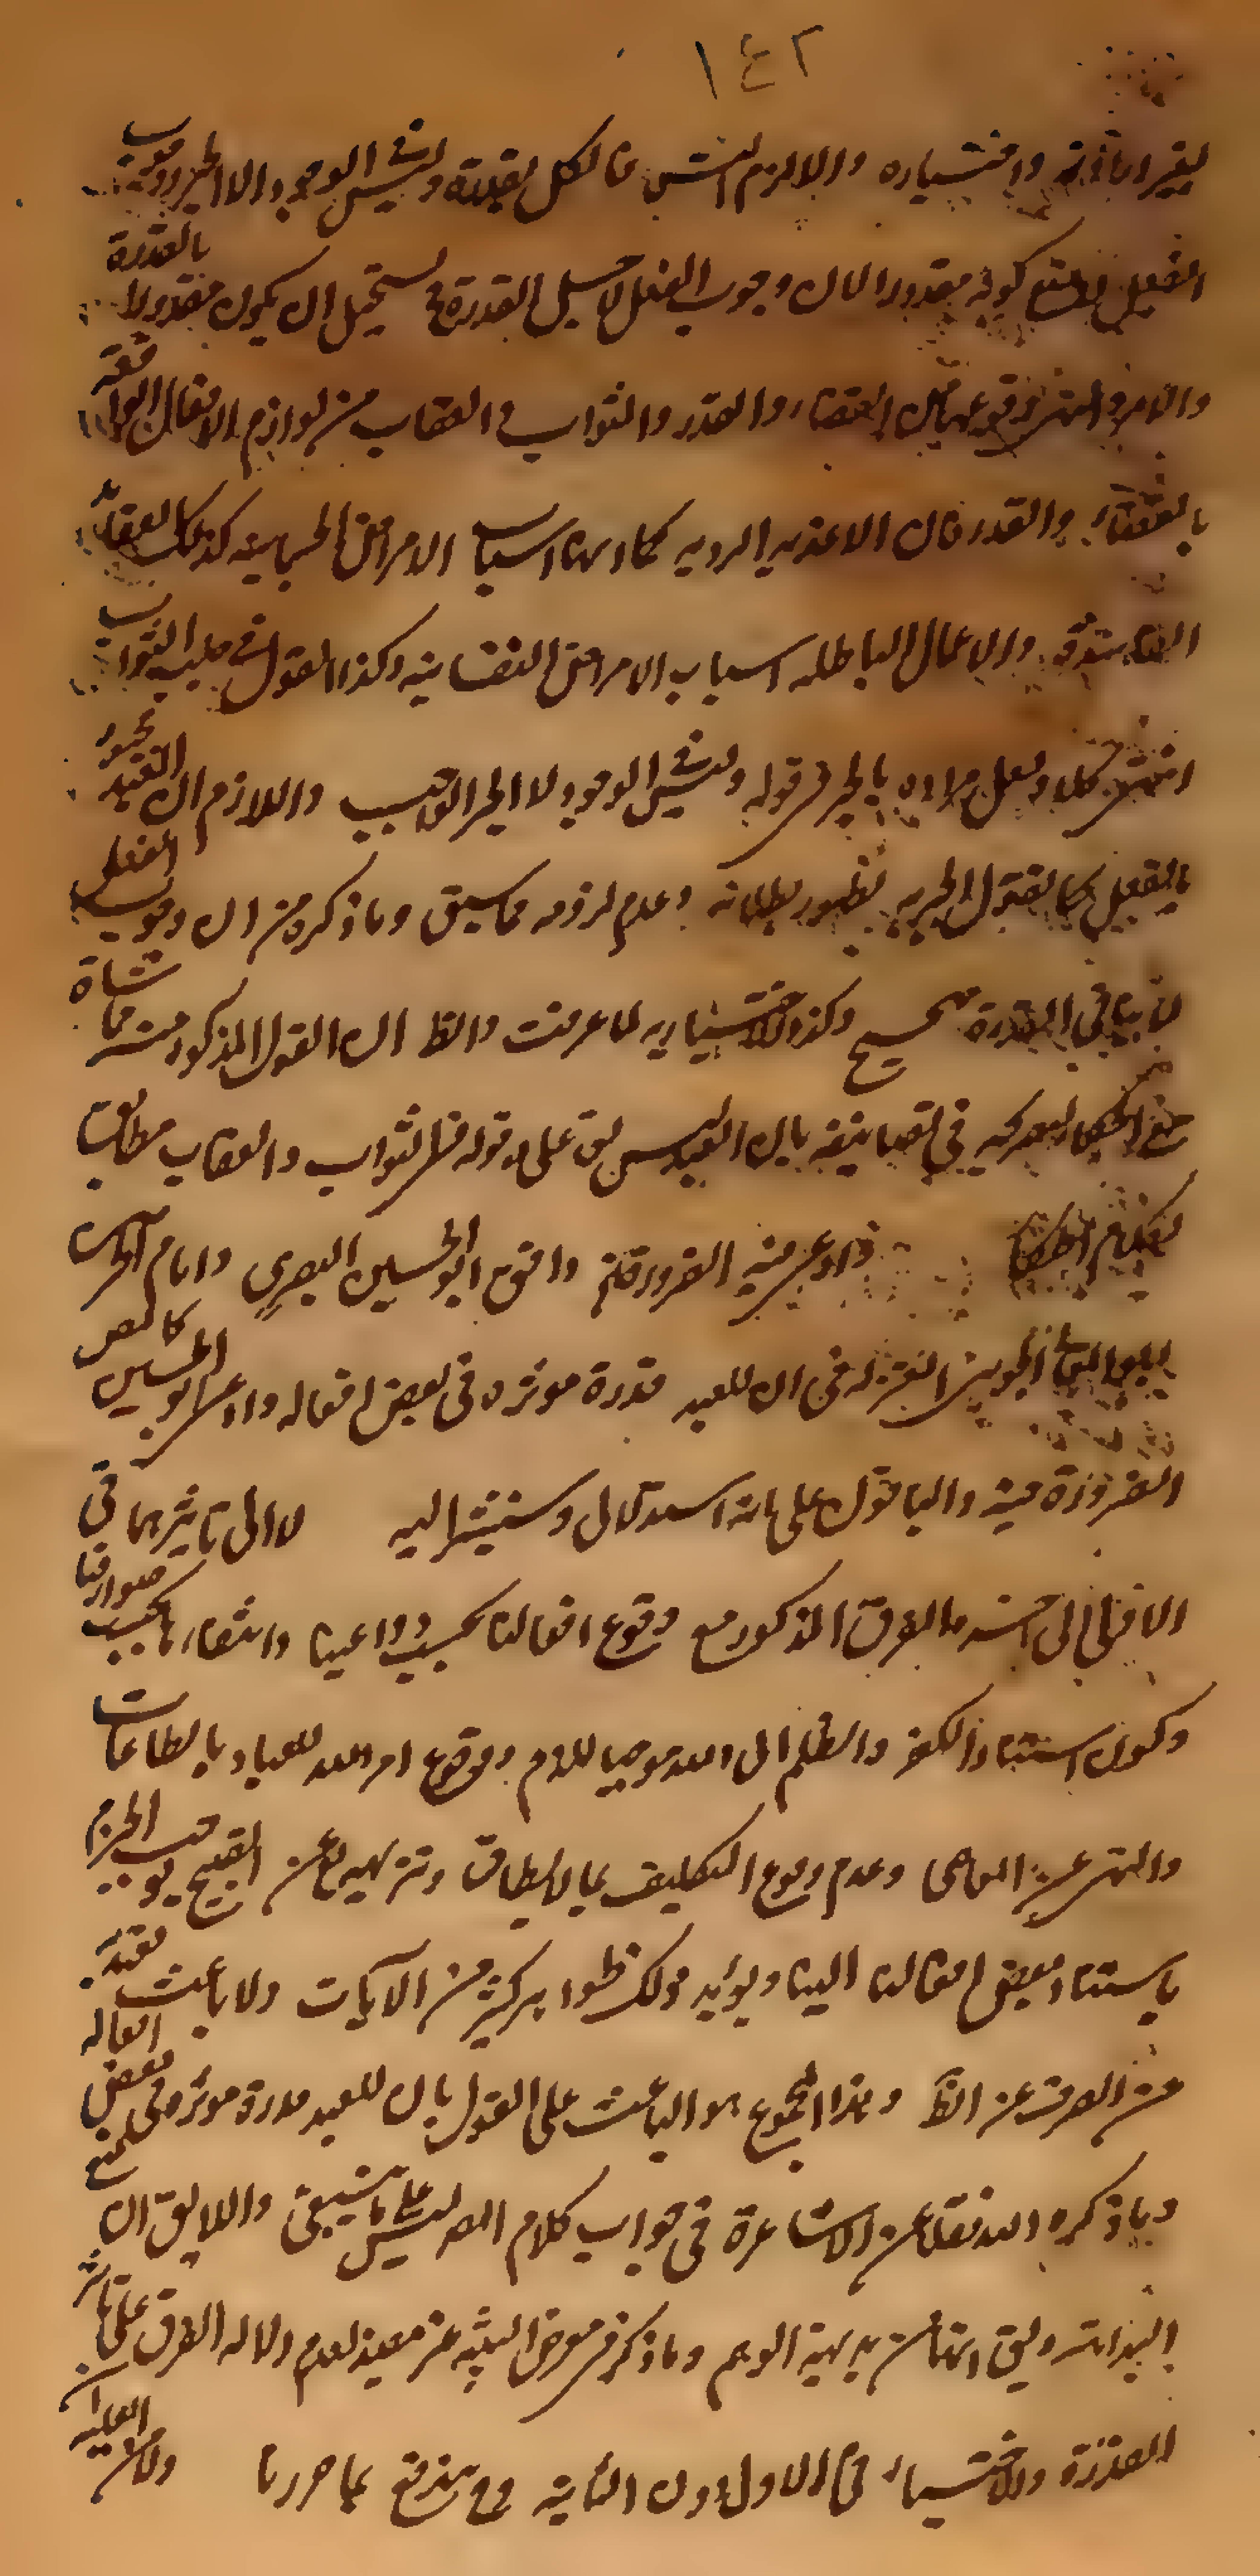 ١٤٢
بغير ارادته واختياره والا لزم التس فالكل بقدرة وليس في الوجود الا الخير ووجوب
الفعل لا يمنع كونه مقدورا لان وجوب الفعل لا جل القدرة فيستحيل ان يكون مقدورا لا بالقدرة
والامر والنهى وقوعهما من القضاء والقدر والثواب والعقاب من لوازم الافعال الواقعة
بالقضاء والقدر فان الاغذيه الرديه كما انها اسباب الامراض الجسمانيه كذلك العقايد
الفاسدة والاعمال الباطله اسباب الامراض النفسانيه وكذا القول في جانب الثواب
انتهى كلامه ولعل مراده بالجبر في قوله وليس في الوجود الا الجبر الواجب واللازم ان العبد مجبور
بالفعل كما يقول الجبريه لظهور بطلانه وعدم لزومه مما سبق وما ذكره من ان وجوب الفعل
لا ينافي القدرة صحيح وكذا الاختياريه لما عرفت والظ ان القول المذكور منه مماشاة
مع الحكماء لتصريحه في تصانيفه بان العبد ليس بفاعل وقوله في الثواب والعقاب مطابق
لكلام الحكماء قوله وادعى فيه الضرورة وافق ابو الحسين البصري وامام الحرمين
ابو المعالى الجوينى المعتزله في ان للعبد قدرة موثره في بعض افعاله وادعى ابو الحسين كالمص
الضرورة فيه والباقون على انه استدلال وسنشير اليه لا الى تاثيرهما في
الافعال الى اخره الفرق المذكور مع وقوع افعالنا بحسب دواعينا وانتفاءها بحسب صوارفنا
وكون استناد الكفر والظلم الى الله موجبا للذم ووقوع امر الله للعباد بالطاعات
والنهى عن المعاصى وعدم وقوع التكليف بما لا يطاق وتنزيهه تع عن القبيح يوجب الجزم
باستناد بعض افعالنا اليناو يويد ذلك ظواهر كثير من الآيات ولا باعث يعتد به
من الصرف عن الظ وهذا المجموع هو الباعث على القول بان للعبد قدرة موثرة فى بعض افعاله
وما ذكره الشه نقلا عن الاشاعرة في جواب كلام المص ليس على ما ينبغى واللايق ان يمنع
البداهة ويق انها من بديهية الوهم وما ذكر في معرض التنبيه غير مفيد لعدم دلاله الفرق على تاثير
القدرة والاختيار في الاول دون الثانية وح يندفع بما حررنا ولان العلية